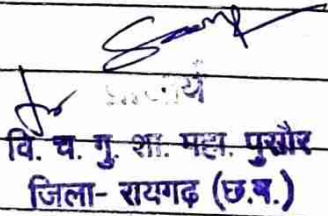 प्राचार्य
वि. च. गु. शा. महा. पुसौर
जिला- रायगढ़ (छ.ग.)